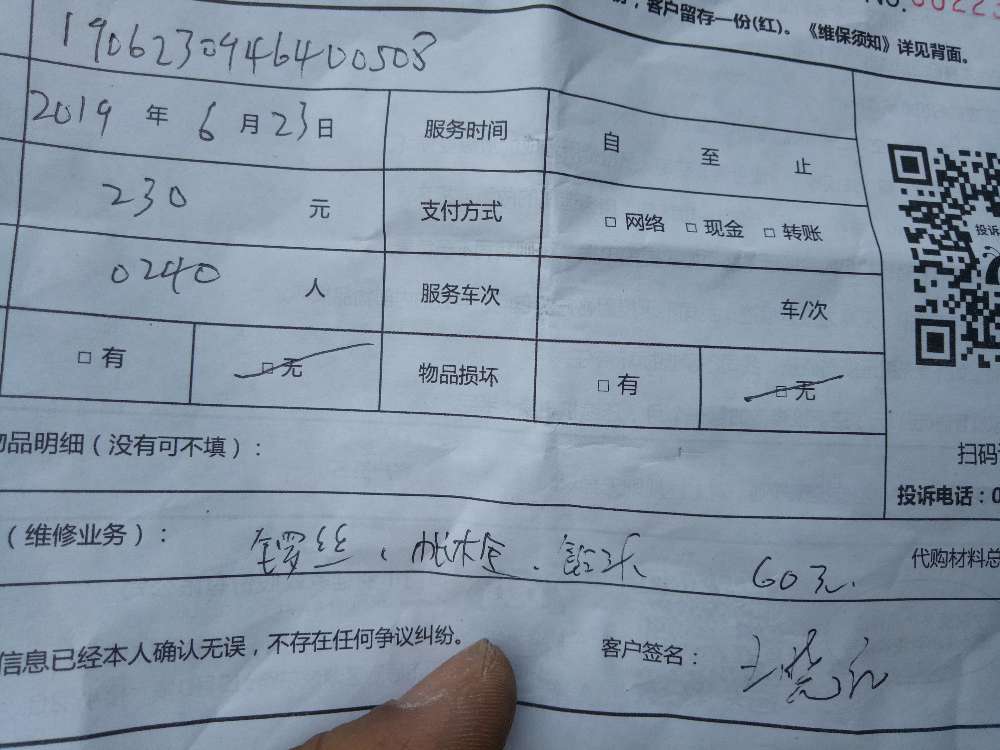 No.00223
，客户留存一份(红)。《维保须知》详见背面。
190623094640050​8
2019 年 6 月 23 日 服务时间 自 至 止
230 元 支付方式 □ 网络 □ 现金 □ 转账
投诉
0240 人 服务车次 车/次
□ 有 □ 无 物品损坏 □ 有 □ 无
物品明细（没有可不填）：
扫码
投诉电话：0
（维修业务）： 锣丝、 60元. 代购材料总
信息已经本人确认无误，不存在任何争议纠纷。 客户签名：